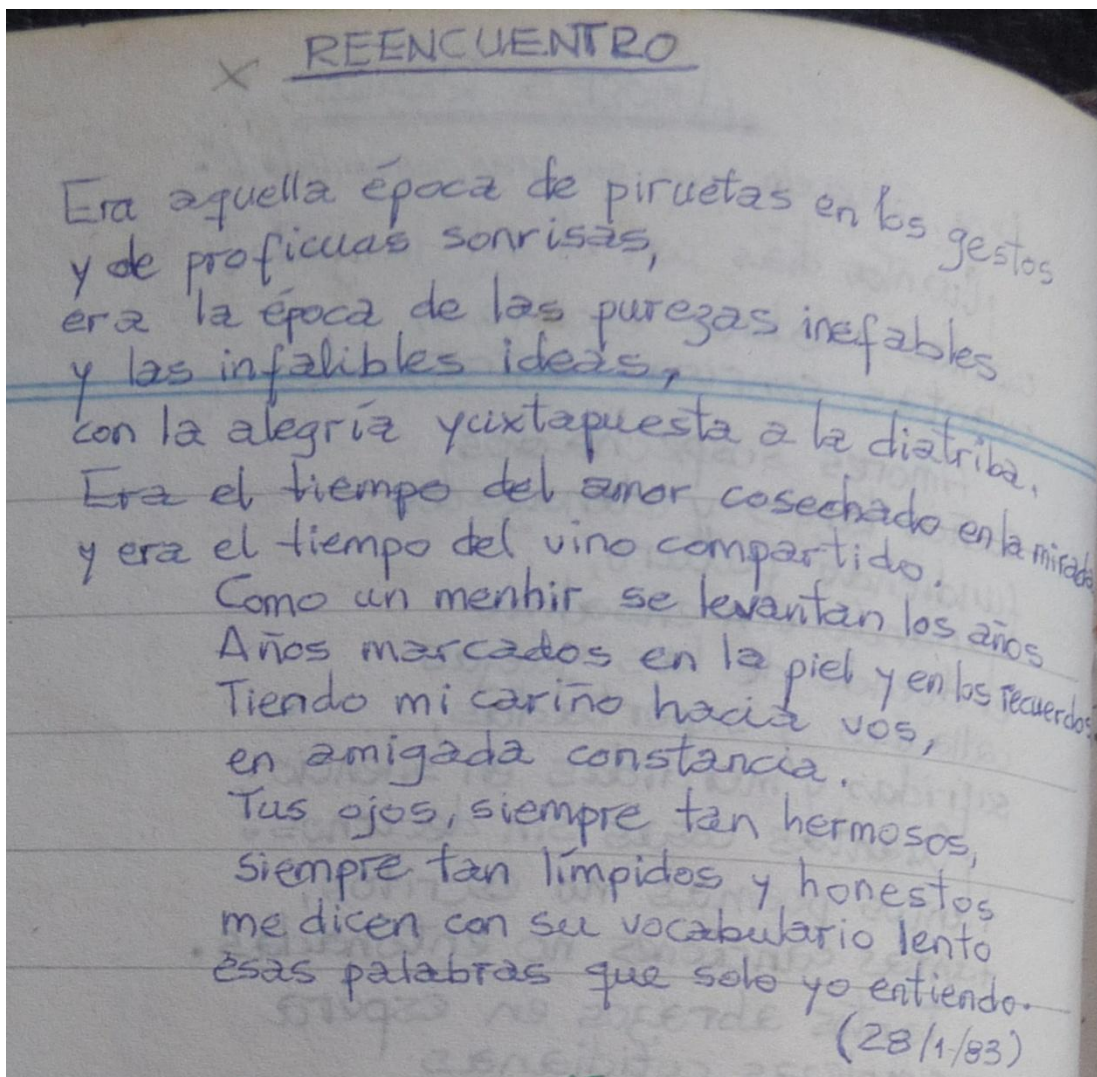 REENCUENTRO
Era aquella época de piruetas en los gestos
y de proficuas sonrisas,
era la época de las purezas inefables
y las infalibles ideas,
con la alegría yuxtapuesta a la diatriba.
Era el tiempo del amor cosechado en la mirada
y era el tiempo del vino compartido.
Como un menhir se levantan los años
Años marcados en la piel y en los recuerdos.
Tiendo mi cariño hacia vos,
en amigada constancia.
Tus ojos, siempre tan hermosos,
siempre tan límpidos y honestos
me dicen con su vocabulario lento
esas palabras que solo yo entiendo.
(28/1/83)